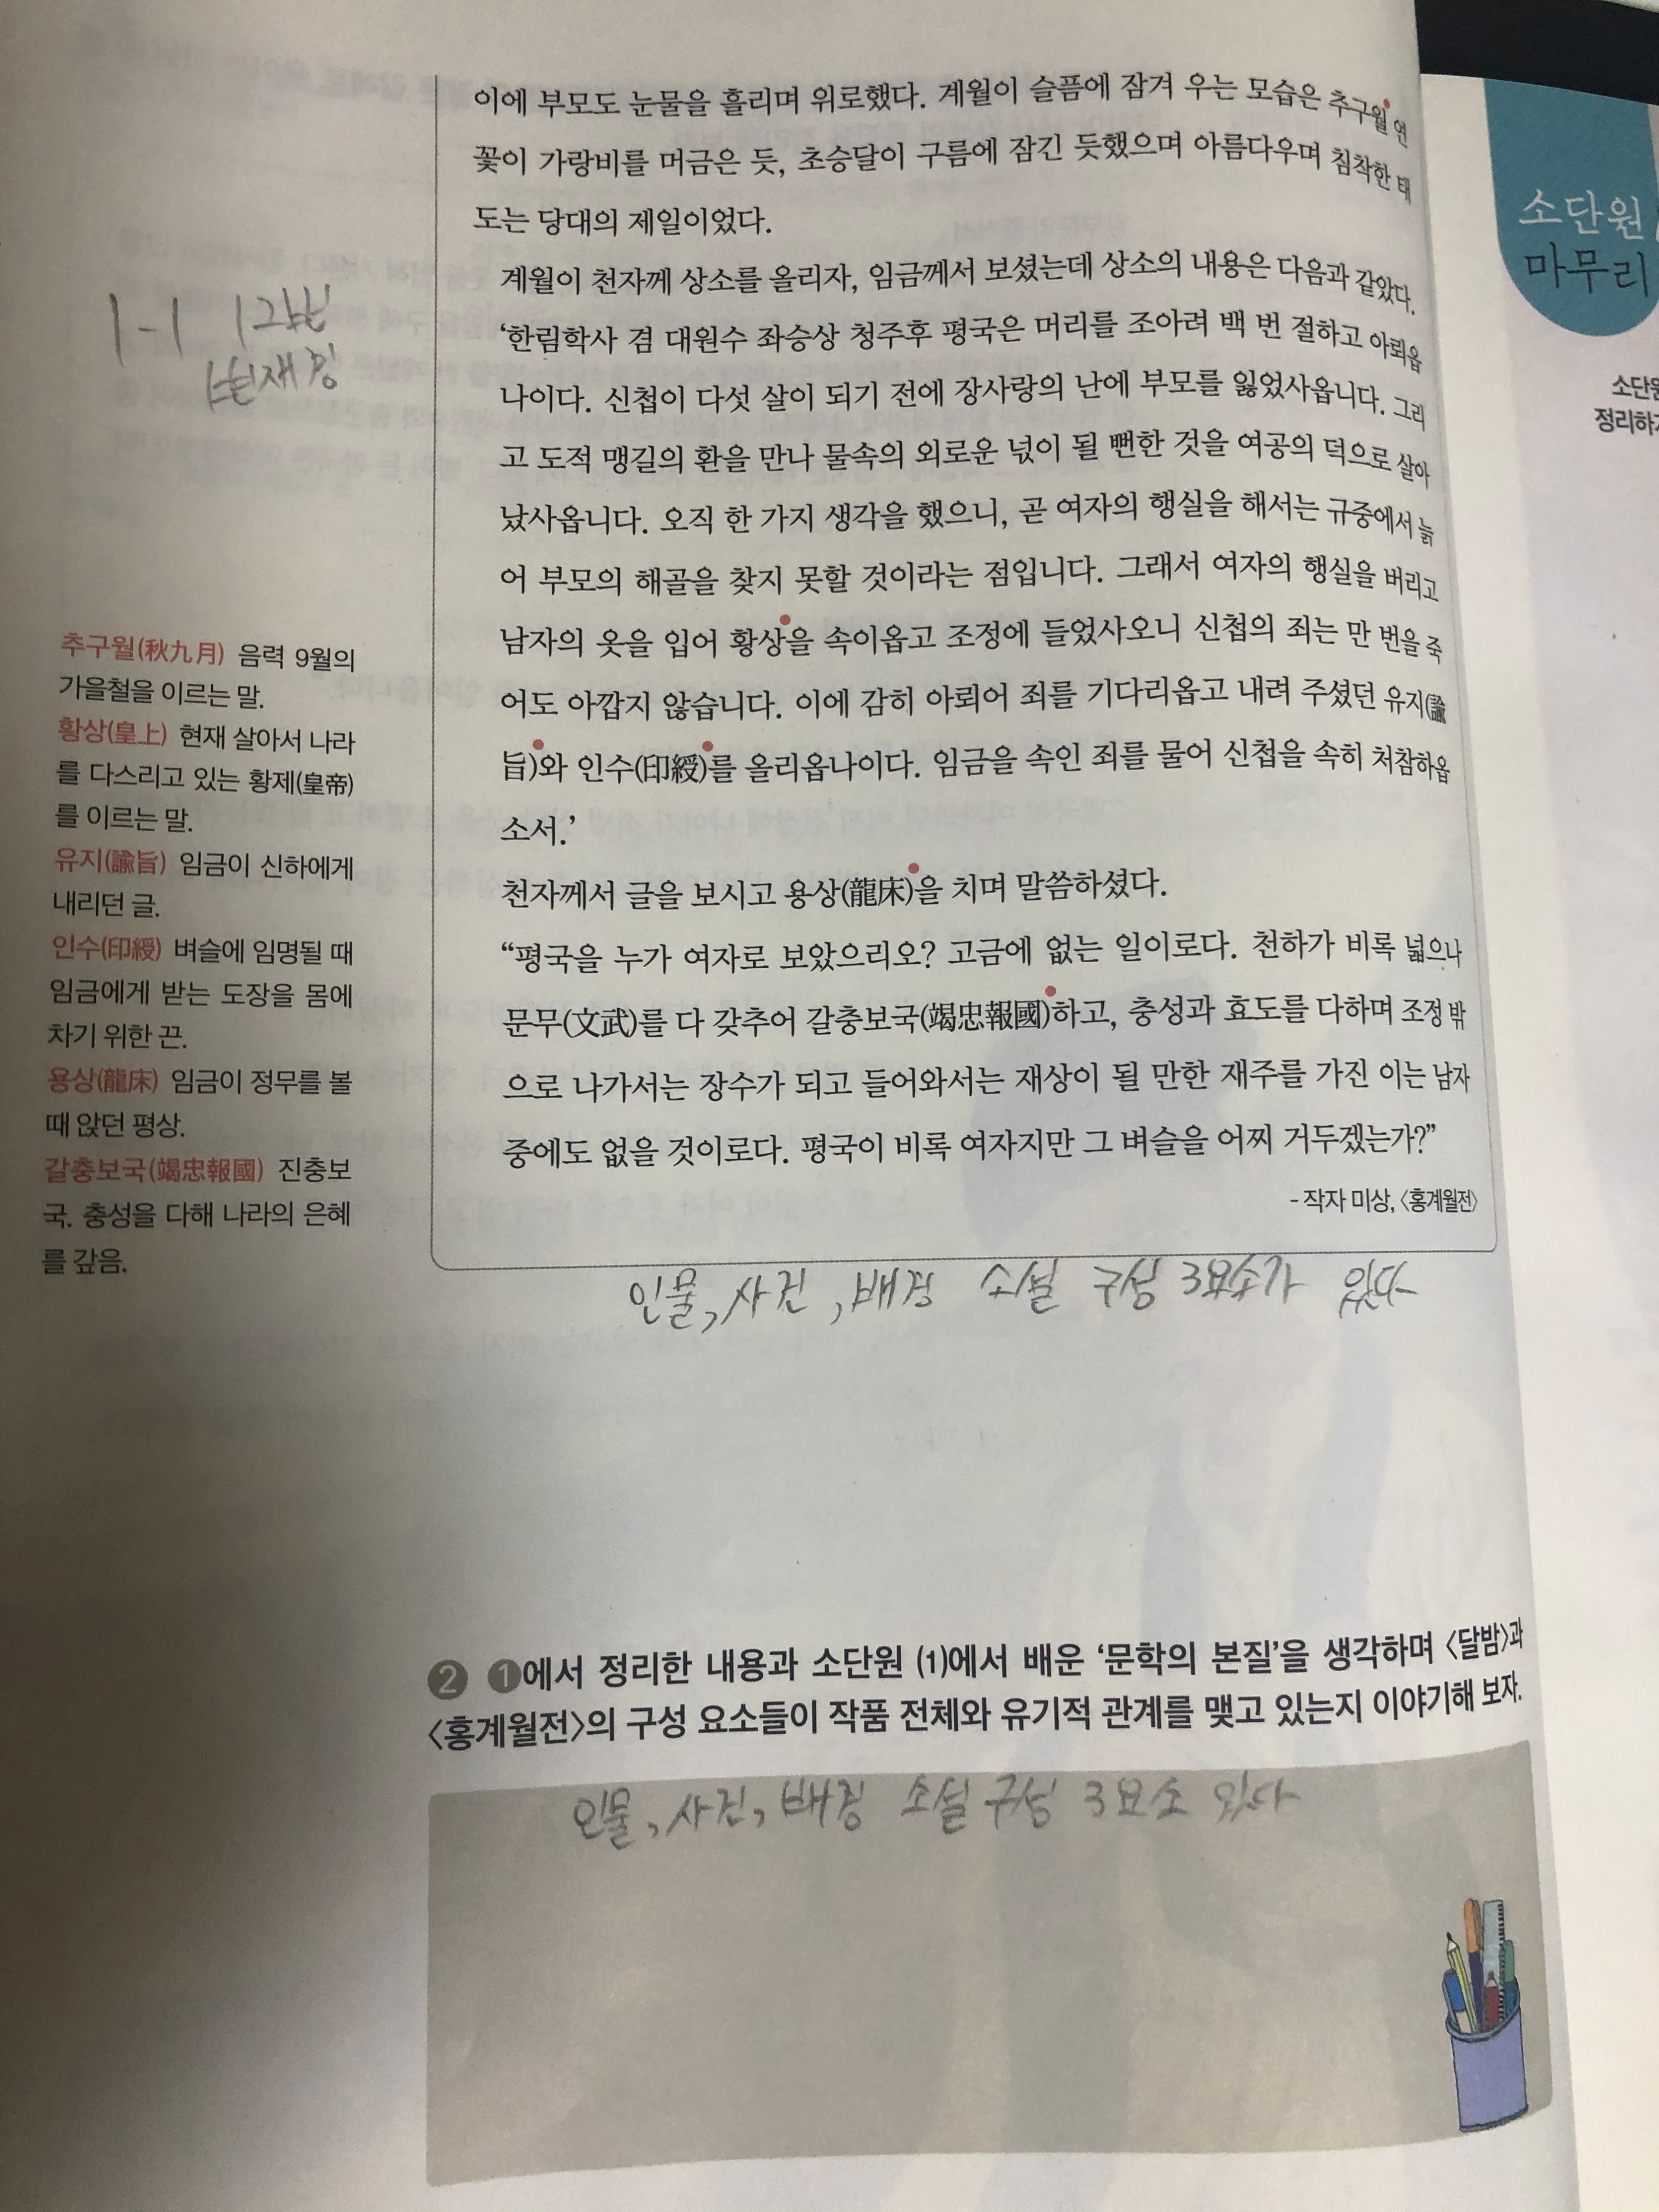 이에 부모도 눈물을 흘리며 위로했다. 계월이 슬픔에 잠겨 우는 모습은 추구월 연
꽃이 가랑비를 머금은 듯, 초승달이 구름에 잠긴 듯했으며 아름다우며 침착한 태
도는 당대의 제일이었다.
계월이 천자께 상소를 올리자, 임금께서 보셨는데 상소의 내용은 다음과 같았다.
‘한림학사 겸 대원수 좌승상 청주후 평국은 머리를 조아려 백 번 절하고 아뢰옵
나이다. 신첩이 다섯 살이 되기 전에 장사랑의 난에 부모를 잃었사옵니다. 그리
고 도적 맹길의 환을 만나 물속의 외로운 넋이 될 뻔한 것을 여공의 덕으로 살아
났사옵니다. 오직 한 가지 생각을 했으니, 곧 여자의 행실을 해서는 규중에서 늙
어 부모의 해골을 찾지 못할 것이라는 점입니다. 그래서 여자의 행실을 버리고
남자의 옷을 입어 황상을 속이옵고 조정에 들었사오니 신첩의 죄는 만 번을 죽
어도 아깝지 않습니다. 이에 감히 아뢰어 죄를 기다리옵고 내려 주셨던 유지(諭
旨)와 인수(印綬)를 올리옵나이다. 임금을 속인 죄를 물어 신첩을 속히 처참하옵
소서.’
천자께서 글을 보시고 용상(龍床)을 치며 말씀하셨다.
“평국을 누가 여자로 보았으리오? 고금에 없는 일이로다. 천하가 비록 넓으나
문무(文武)를 다 갖추어 갈충보국(竭忠報國)하고, 충성과 효도를 다하며 조정 밖
으로 나가서는 장수가 되고 들어와서는 재상이 될 만한 재주를 가진 이는 남자
중에도 없을 것이로다. 평국이 비록 여자지만 그 벼슬을 어찌 거두겠는가?”
- 작자 미상, 〈홍계월전〉
1-1
추구월(秋九月) 음력 9월의
가을철을 이르는 말.
황상(皇上) 현재 살아서 나라
를 다스리고 있는 황제(皇帝)
를 이르는 말.
유지(諭旨) 임금이 신하에게
내리던 글.
인수(印綬) 벼슬에 임명될 때
임금에게 받는 도장을 몸에
차기 위한 끈.
용상(龍床) 임금이 정무를 볼
때 앉던 평상.
갈충보국(竭忠報國) 진충보
국. 충성을 다해 나라의 은혜
를 갚음.
인물, 사건, 배경 소설 구성 3요소가 있다
2 1에서 정리한 내용과 소단원 (1)에서 배운 ‘문학의 본질’을 생각하며 〈달밤〉과
〈홍계월전〉의 구성 요소들이 작품 전체와 유기적 관계를 맺고 있는지 이야기해 보자.
인물, 사건, 배경 소설 구성 3요소 있다
소단원
마무리
소단원
정리하